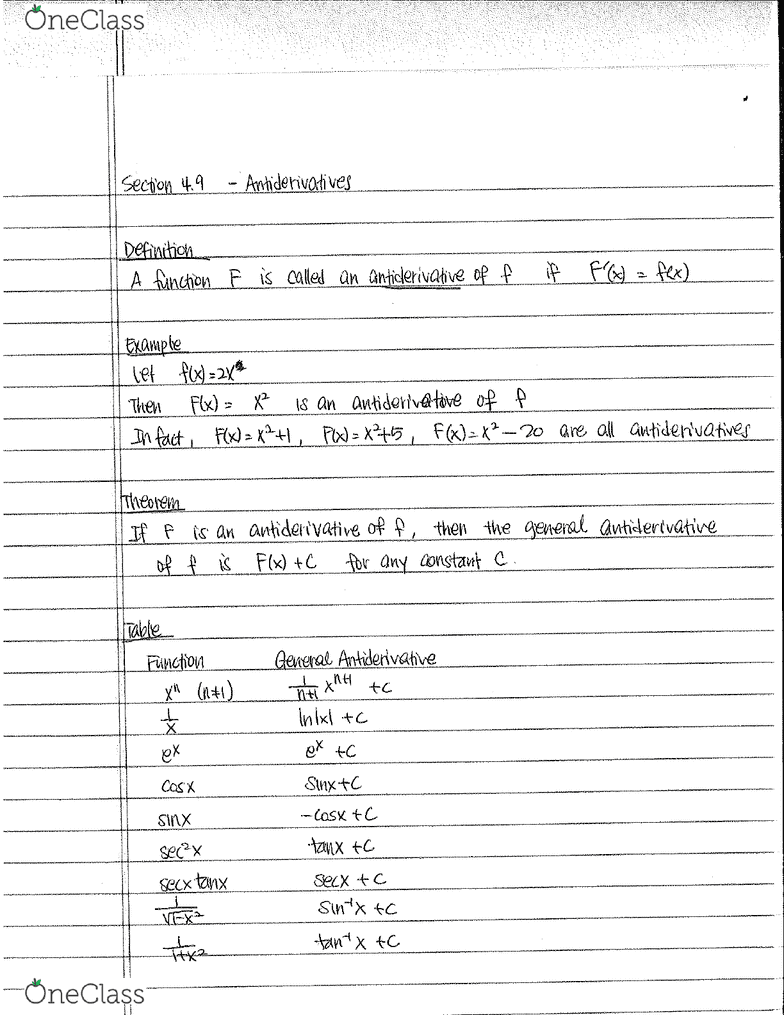 OneClass
Section 4.9 - Antiderivatives
Definition
A function F is called an antiderivative of f if F'(x) = f(x)
Example
Let f(x) = 2x
Then F(x) = x² is an antiderivative of f
In fact, F(x) = x²+1, F(x) = x²+5, F(x) = x² - 20 are all antiderivatives
Theorem
If F is an antiderivative of f, then the general antiderivative
of f is F(x) + C for any constant C.
Table
Function General Antiderivative
xⁿ (n≠1) 1/(n+1) xⁿ⁺¹ + C
1/x ln|x| + C
eˣ eˣ + C
cosx sinx + C
sinx -cosx + C
sec²x tanx + C
secxtanx secx + C
1/√(1-x²) sin⁻¹x + C
1/(1+x²) tan⁻¹x + C
OneClass